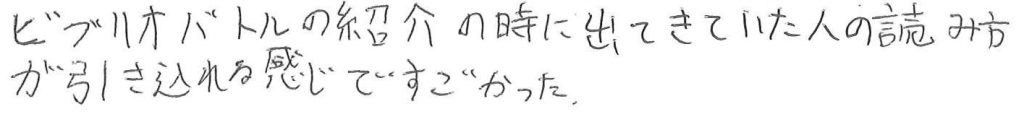 ビブリオバトルの紹介の時に出てきていた人の読み方
が引き込れる感じですごかった.